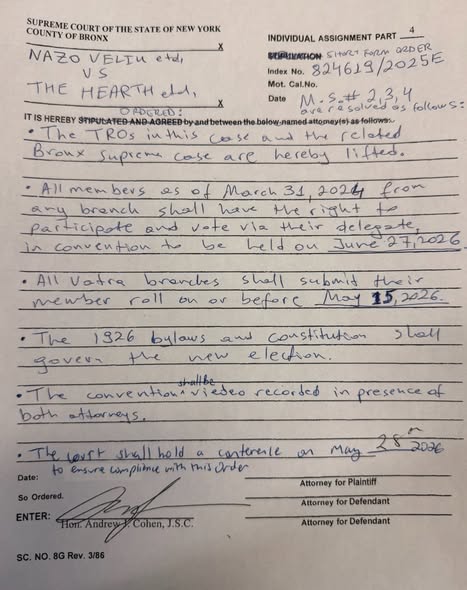 SUPREME COURT OF THE STATE OF NEW YORK
COUNTY OF BRONX
X
NAZO VELIU etal,
VS
THE HEARTH etal,
X
INDIVIDUAL ASSIGNMENT PART 4
STIPULATION SHORT FORM ORDER
Index No. 824619/2025E
Mot. Cal.No.
Date M.S.# 2,3,4
are resolved as follows:
ORDERED:
IT IS HEREBY STIPULATED AND AGREED by and between the below named attorney(s) as follows:
• The TROs in this case and the related
Bronx Supreme case are hereby lifted.
• All members as of March 31, 2024 from
any branch shall have the right to
participate and vote via their delegate,
in convention to be held on June 27, 2026.
• All Vatra branches shall submit their
member roll on or before May 15, 2026.
• The 1926 bylaws and constitution shall
govern the new election.
• The convention shall be viedeo recorded in presence of
both attorneys.
• The court shall hold a conference on May 28th 2026
to ensure compliance with this Order
Date:
Attorney for Plaintiff
So Ordered.
Attorney for Defendant
ENTER:
Hon. Andrew J. Cohen, J.S.C.
Attorney for Defendant
SC. NO. 8G Rev. 3/86